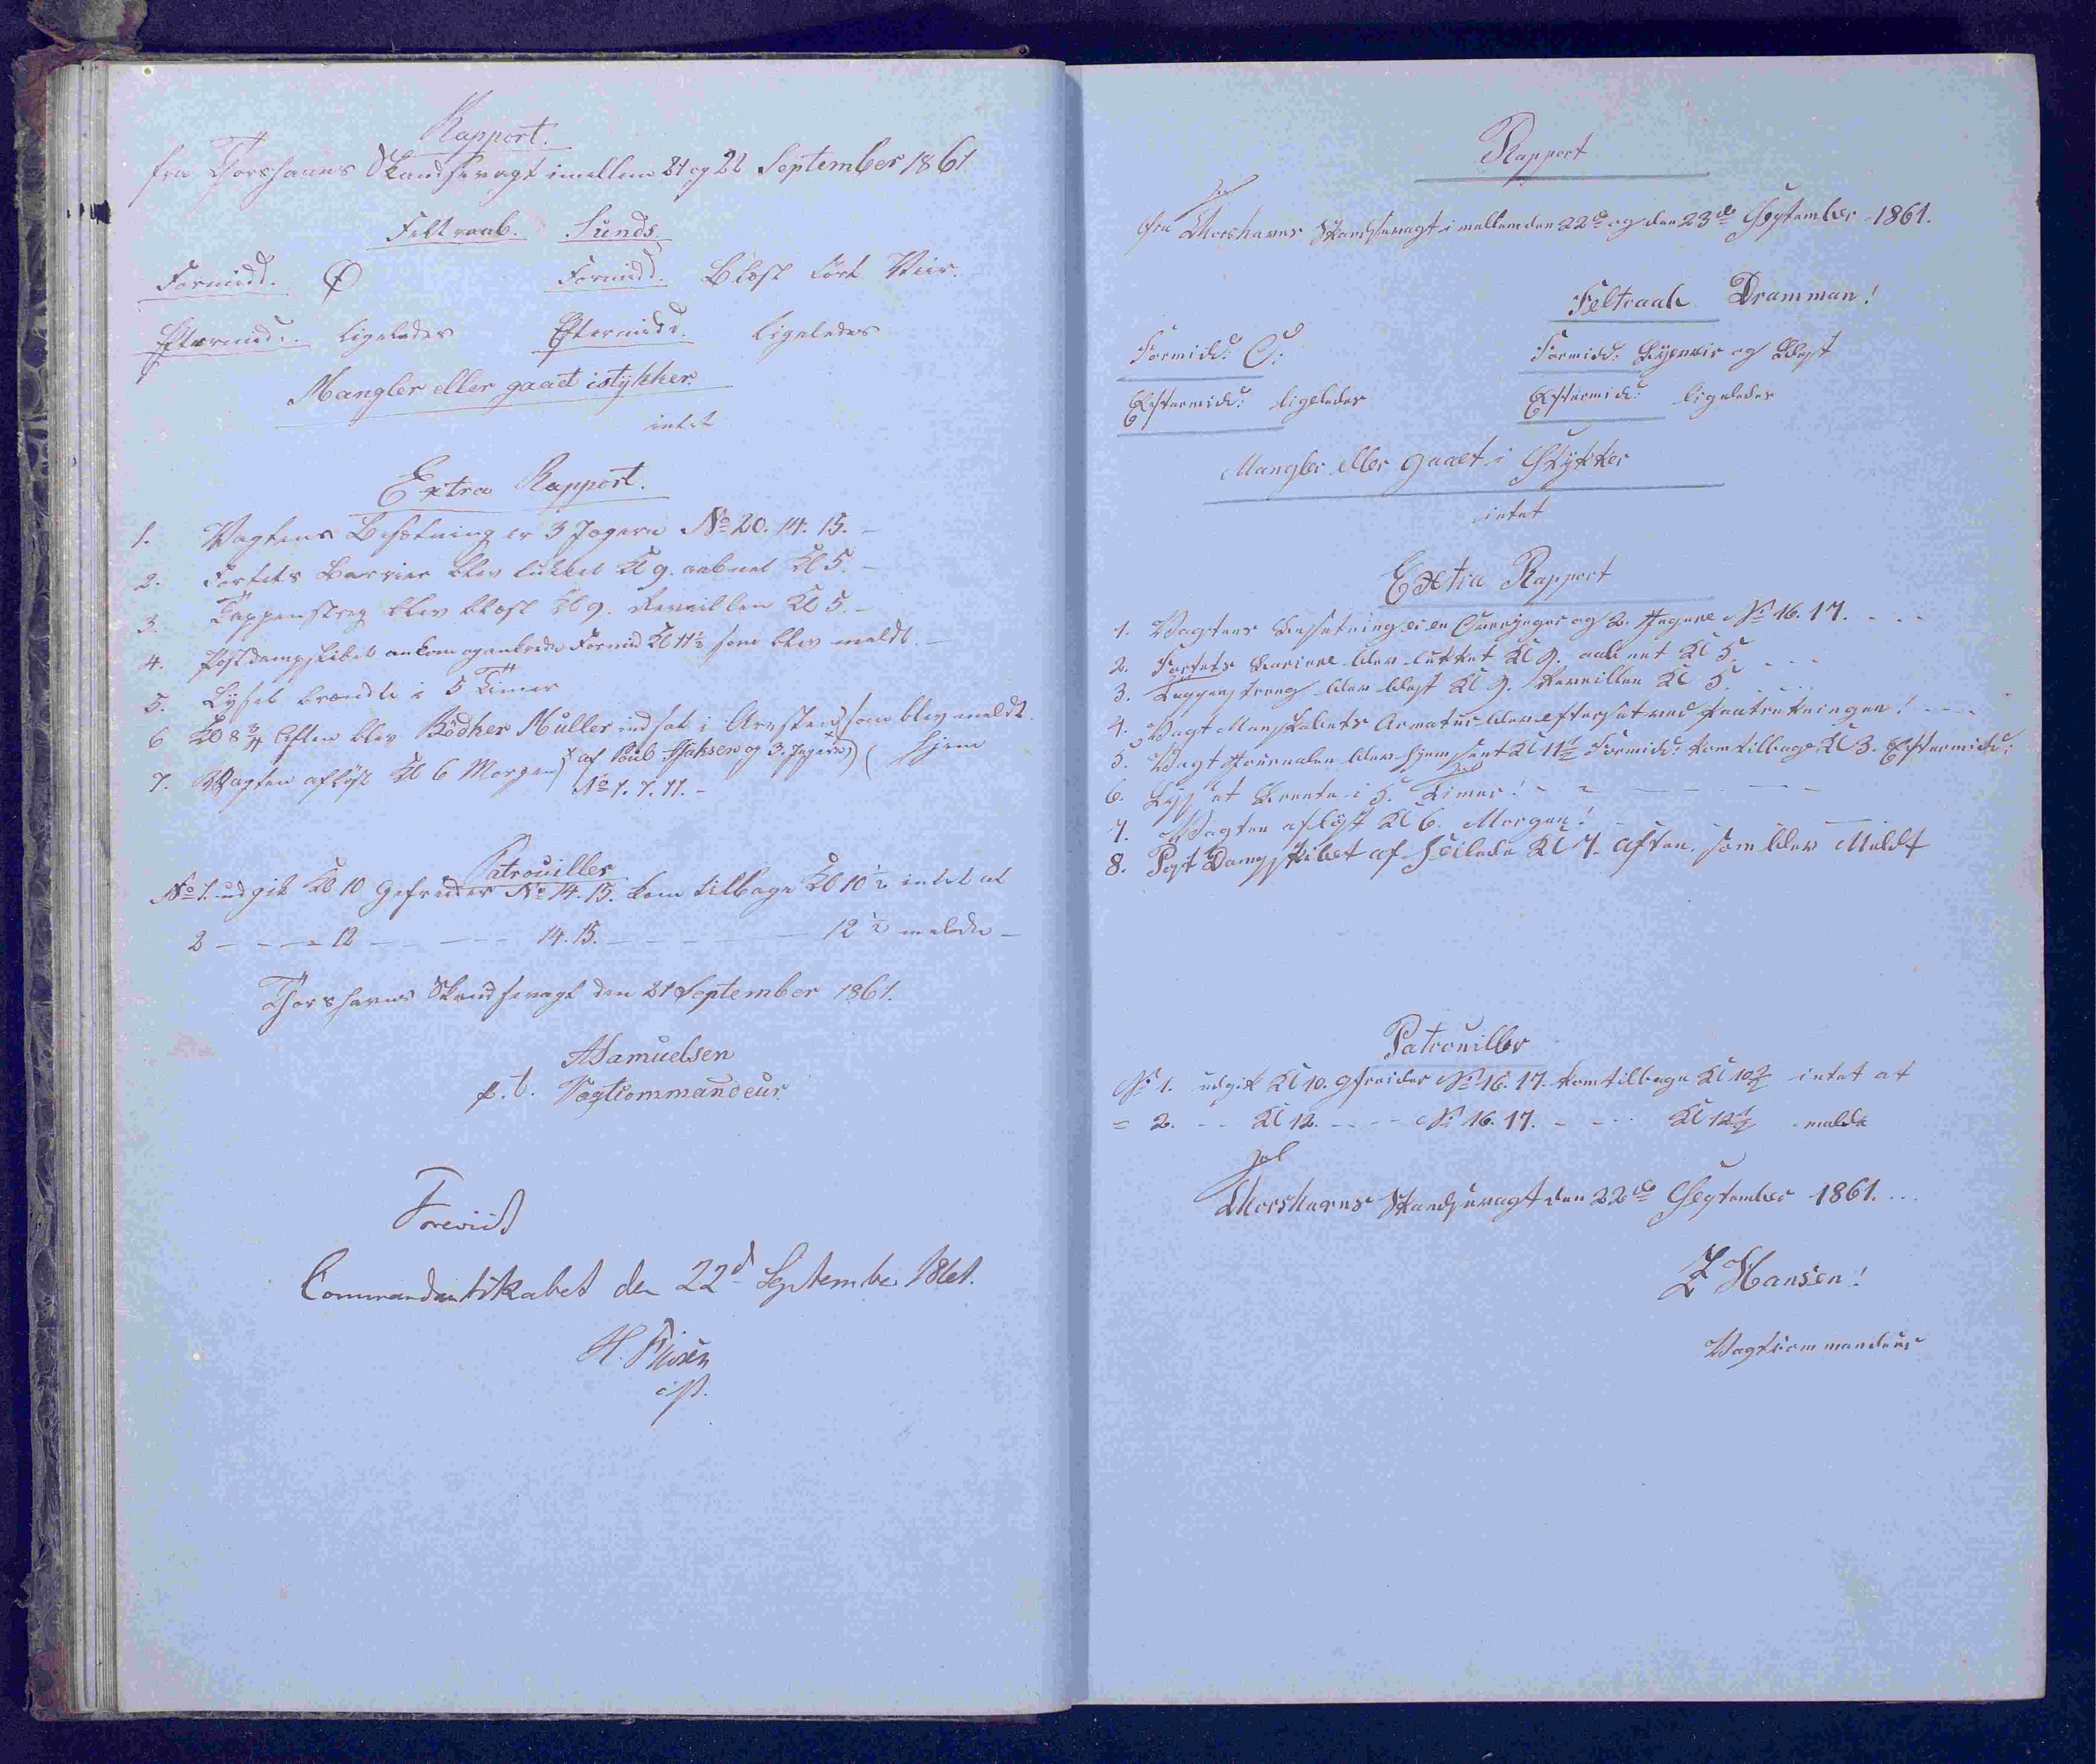 Rapport.
fra Thorshavns Skandsevagt imellem 21 og 22 September 1861
Feltraab. Sunds
Formidd. Formidd. Blæst tört Veir.
Eftermidd. ligeledes Eftermidd. ligeledes
Mangler eller gaaet istykker.
intet
Extra Rapport.
1. Vagtens Besætning er 3 Jægere No 20. 14. 15. –
2. Fortets Barriere blev lukket Kl 9. aabnet Kl 5. –
3. Tappenstreg blev blæst Kl 9. Reveillen Kl 5. –
4. Postdampskibet ankom og ankrede Formid Kl 11½ som blev meldt. –
5. Lyset brændte i 5 Timer
6 Kl 8¾ Aften blev Bödker Müller indsat i Aresten som blev meldt.
7. Vagten aflöst Kl 6 Morgen af Poul og 3. Jægere hjem
No 1. 7. 11. –
Patrouiller
No 1. udgik Kl 10 Gefreider No 14. 15. kom tilbage Kl 10½ intet at
2 – – – 12 – – – 14. 15. – – – – 12½ melde –
Thorshavns Skandsevagt den 21 September 1861.
Samuelsen
p. t. Vagtcommandeur
Foreviist
Commandantskabet den 22d September 1861.
H.
Rapport
fra Thorshavns Skandsevagt i mellem den 22de og den 23de September 1861.
Feltraab Dramman!
Formidd: Formidd: og Blæst
Eftermidd: ligeledes Eftermidd: ligeledes
Mangler eller gaaet i Stykker
intet
Extra Rapport
1. Vagtens Besætning er en Overjæger og 2. Jægere No 16. 17. - - -
2. Fortets Bariere blev lukket Kl 9. aabnet Kl 5.
3. Tappenstreeg blev blæst Kl 9. Reveillen Kl 5. - - -
4. Vagt Manskabets Armatur blev efterset ved Fratrætningen! - - -
5. Vagt Journalen blev hjemsent Kl 11½ Formidd: kom tilbage Kl 3. Eftermidd:
6. Lyset brente i 5. Timer! - - -
7. Vagten aflöst Kl 6. Morgen!
8. Post Dampskibet af seilede Kl 7. aften, som blev Meldt
Patrouiller
No 1. udgik Kl 10. Gfreider No 16. 17. kom tilbage Kl 10½ intet at
= 2. - - Kl 12. - - - No 16. 17. - - - Kl 12½ melde
Thorshavns Skandsevagt den 22de September 1861. ...
Z Hansen!
Vagtcommandeur